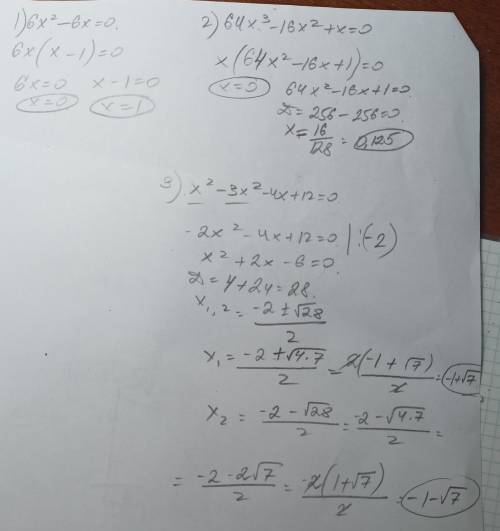 1) 6x² - 6x = 0.
6x(x - 1) = 0
6x = 0 x - 1 = 0
x = 0 x = 1
2) 64x³ - 16x² + x = 0
x(64x² - 16x + 1) = 0
x = 0 64x² - 16x + 1 = 0.
D = 256 - 256 = 0.
x = 16/128 = 0,125
3) x² - 3x² - 4x + 12 = 0.
-2x² - 4x + 12 = 0 | : (-2)
x² + 2x - 6 = 0.
D = 4 + 24 = 28.
x₁,₂ = (-2 ± √28)/2
x₁ = (-2 + √4·7)/2 = 2(-1 + √7)/2 = -1+√7
x₂ = (-2 - √28)/2 = (-2 - √4·7)/2 =
= (-2 - 2√7)/2 = -2(1 + √7)/2 = -1 - √7